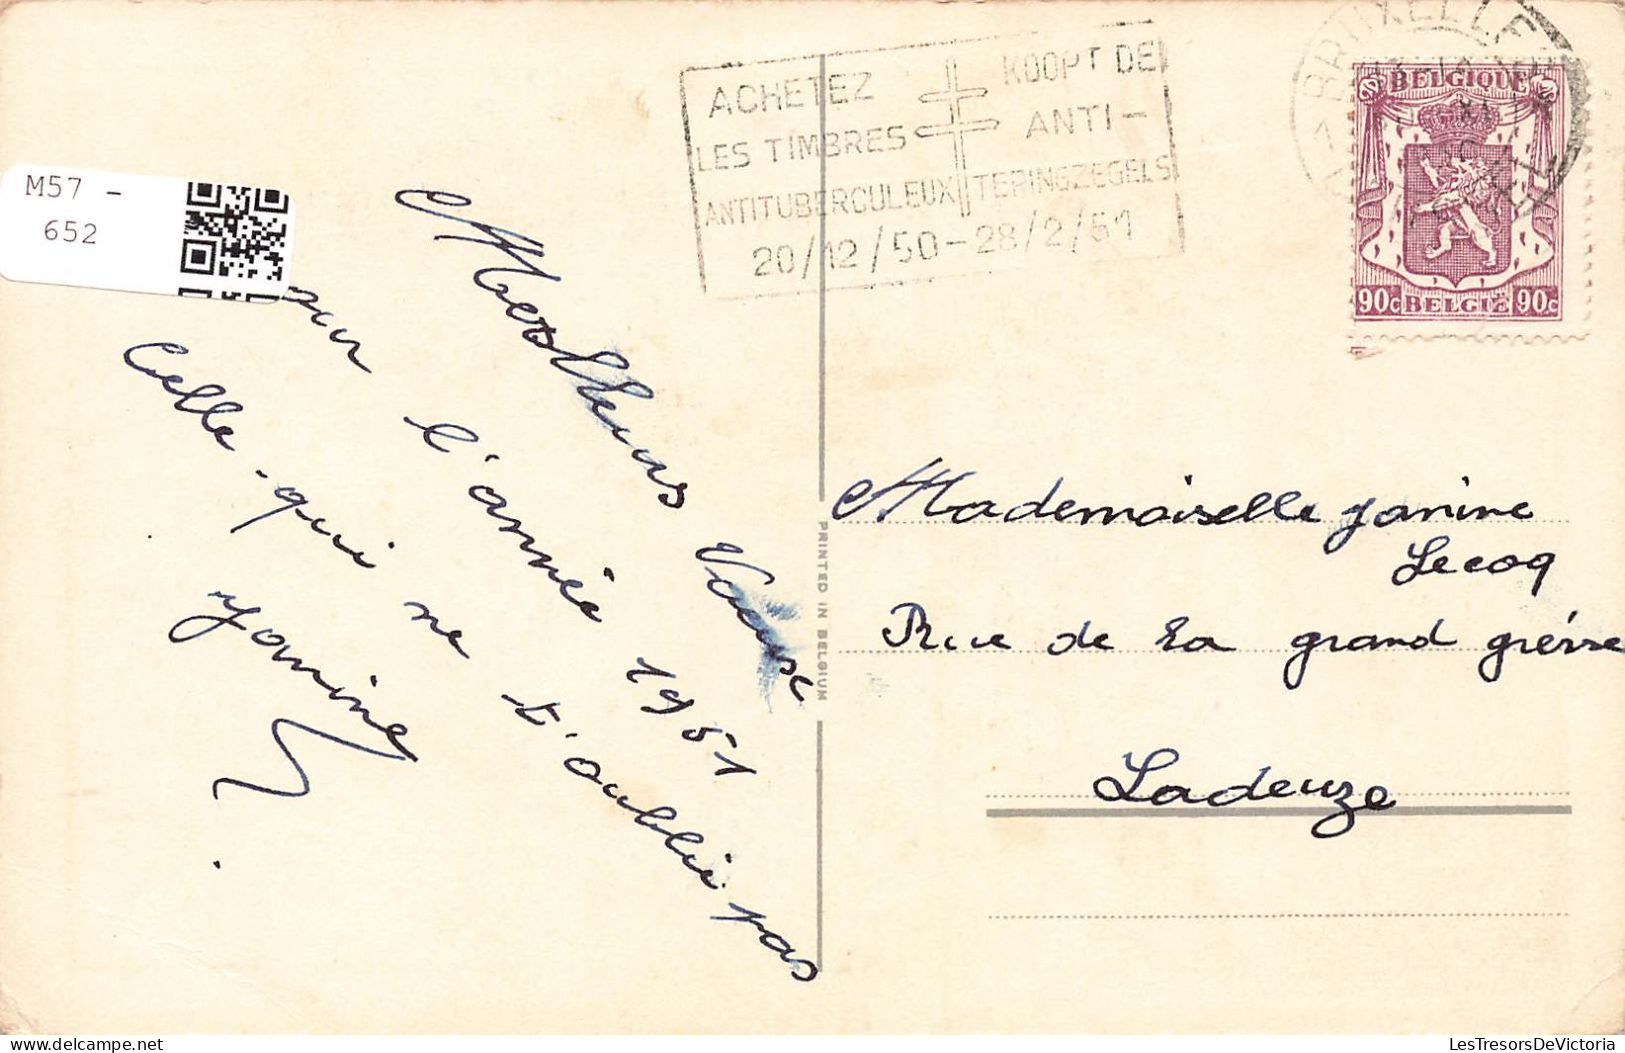 M57 -
652
ACHETEZ
LES TIMBRES
ANTITUBERCULEUX
KOOPT DE
ANTI-
TERINGZEGELS
20/12/50-28/2/51
BRUXELLE
BELGIQUE
90c BELGIE 90c
Meilleurs Vœux
pour l'année 1951
Celle qui ne t'oublie pas
Yanine
PRINTED IN BELGIUM
Mademoiselle Janine
Lecoq
Rue de la grand
Ladeuze
delcampe.net
LesTresorsDeVictoria